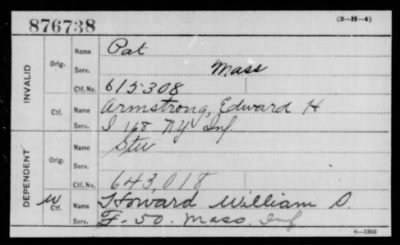 876738
(3—H—4)
INVALID
Orig.
Name Pat
Serv. Mass
Ctf. No. 615308
Ctf.
Name Armstrong, Edward H
Serv. I 168 NY Inf
DEPENDENT
Orig.
Name Stev
Serv.
Ctf. No. 643,018
W Ctf.
Name Howard William D.
Serv. F. 50. Mass. Inf
6—1363